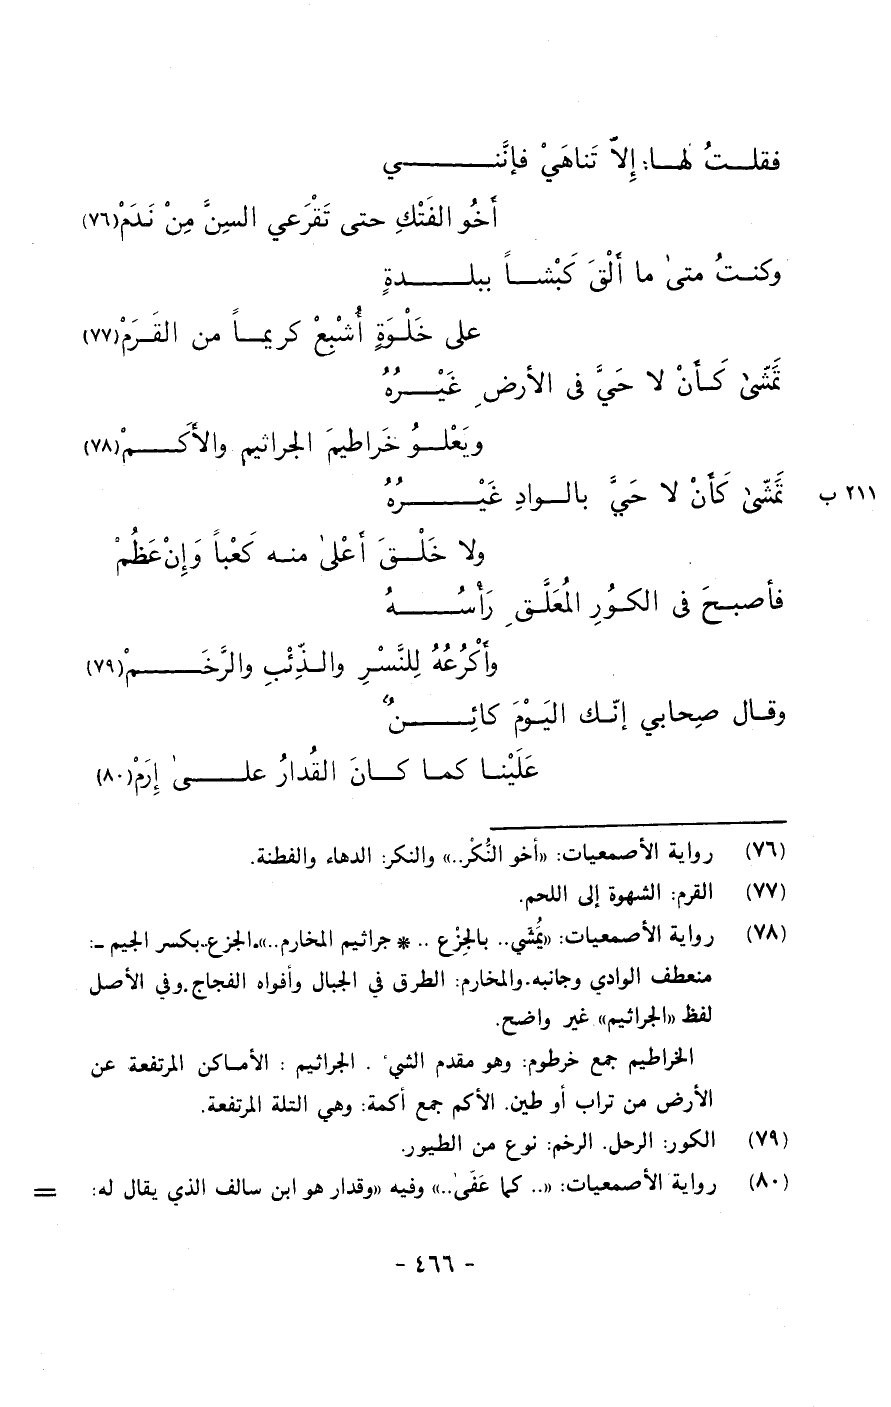 فقلتُ لها: إِلاّ تَناهَيْ فإنَّني
أَخُو الفَتْكِ حتى تَقْرَعي السِنَّ مِنْ نَدَمْ(٧٦)
وكنتُ متىٰ ما أَلْقَ كَبْشاً ببلدةٍ
على خَلْوَةٍ أُشْبِعْ كريماً من القَرَمْ(٧٧)
تَمَشّىٰ كَأَنْ لا حَيَّ في الأرضِ غَيْرُهُ
ويَعْلُو خَراطيمَ الجراثيم والأَكَمْ(٧٨)
تَمَشّىٰ كَأَنْ لا حَيَّ بالوادِ غَيْرُهُ ٢١١ ب
ولا خَلْقَ أَعْلىٰ منه كَعْباً وَإِنْ عَظُمْ
فأصبحَ في الكُورِ المُعَلَّقِ رَأْسُهُ
وأَكْرُعُهُ لِلنَّسْرِ والذِّئْبِ والرَّخَمْ(٧٩)
وقال صِحابي إنّك اليَوْمَ كائِنٌ
عَلَيْنا كما كانَ القُدارُ علىٰ إِرَمْ(٨٠)
(٧٦) رواية الأصمعيات: «أخو النُّكْر..» والنكر: الدهاء والفطنة.
(٧٧) القرم: الشهوة إلى اللحم.
(٧٨) رواية الأصمعيات: «يُمَشّي.. بالجِزْع .. * جراثيم المخارم..».الجزع-بكسر الجيم -:
منعطف الوادي وجانبه.والمخارم: الطرق في الجبال وأفواه الفجاج.وفي الأصل
لفظ «الجراثيم» غير واضح.
الخراطيم جمع خرطوم: وهو مقدم الشيء . الجراثيم : الأماكن المرتفعة عن
الأرض من تراب أو طين. الأكم جمع أكمة: وهي التلة المرتفعة.
(٧٩) الكور: الرحل. الرخم: نوع من الطيور.
(٨٠) رواية الأصمعيات: «.. كما عَفَىٰ..» وفيه «وقدار هو ابن سالف الذي يقال له: =
- ٤٦٦ -